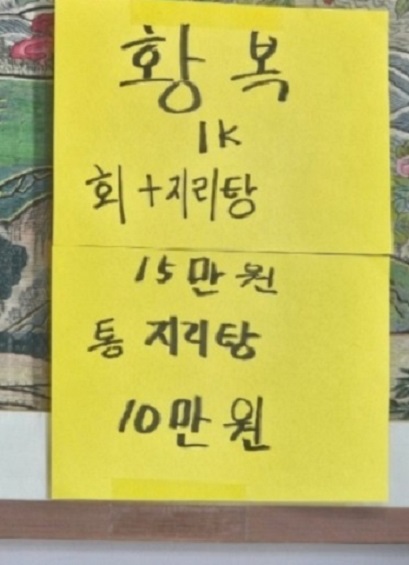 황복
1K
회+지리탕
15만원
통 지리탕
10만원